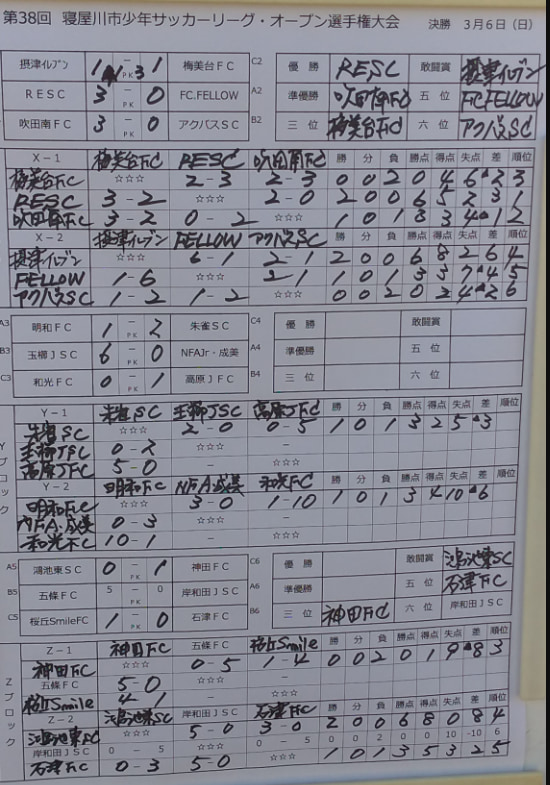 第38回 寝屋川市少年サッカーリーグ・オープン選手権大会 決勝 3月6日（日）
摂津イレブン 1 － 1 梅美台FC C2 優勝 RESC 敢闘賞 摂津イレブン
PK 3
RESC 3 － 0 FC.FELLOW A2 準優勝 吹田南FC 五位 FC.FELLOW
吹田南FC 3 － 0 アクバスSC B2 三位 梅美台FC 六位 アクバスSC
X-1 梅美台FC RESC 吹田南FC 勝 分 負 勝点 得点 失点 差 順位
梅美台FC ☆☆☆ 2－3 2－3 0 0 2 0 4 6 ▲2 3
RESC 3－2 ☆☆☆ 2－0 2 0 0 6 5 2 3 1
吹田南FC 3－2 0－2 ☆☆☆ 1 0 1 3 3 4 ▲1 2
X-2 摂津イレブン FELLOW アクバスSC 勝 分 負 勝点 得点 失点 差 順位
摂津イレブン ☆☆☆ 6－1 2－1 2 0 0 6 8 2 6 4
FELLOW 1－6 ☆☆☆ 2－1 1 0 1 3 3 7 ▲4 5
アクバスSC 1－2 1－2 ☆☆☆ 0 0 2 0 2 4 ▲2 6
A3 明和FC 1 － 2 朱雀SC C4 優勝 敢闘賞
PK
B3 玉櫛JSC 6 － 0 NFAJr・成美 A4 準優勝 五位
PK
C3 和光FC 0 － 1 高原JFC B4 三位 六位
PK
Y-1 朱雀SC 玉櫛JSC 高原JFC 勝 分 負 勝点 得点 失点 差 順位
朱雀SC ☆☆☆ 2－0 0－5 1 0 1 3 2 5 ▲3
玉櫛JSC 0－2 ☆☆☆ －
高原JFC 5－0 － ☆☆☆
Yブロック
Y-2 明和FC NFA.成美 和光FC 勝 分 負 勝点 得点 失点 差 順位
明和FC ☆☆☆ 3－0 1－10 1 0 1 3 4 10 ▲6
NFA.成美 0－3 ☆☆☆ －
和光FC 10－1 － ☆☆☆
A5 鴻池東SC 0 － 1 神田FC C6 優勝 敢闘賞 鴻池東SC
PK
B5 五條FC 5 － 0 岸和田JSC A6 準優勝 五位 石津FC
PK
C5 桜丘SmileFC 1 － 0 石津FC B6 三位 神田FC 六位 岸和田JSC
PK
Z-1 神田FC 五條FC 桜丘Smile 勝 分 負 勝点 得点 失点 差 順位
神田FC ☆☆☆ 0－5 1－4 0 0 2 0 1 9 ▲8 3
五條FC 5－0 ☆☆☆ －
桜丘Smile 4－1 － ☆☆☆
Zブロック
Z-2 鴻池東SC 岸和田JSC 石津FC 勝 分 負 勝点 得点 失点 差 順位
鴻池東SC ☆☆☆ 5－0 3－0 2 0 0 6 8 0 8 4
岸和田JSC 0－5 ☆☆☆ 0－5 0 0 2 0 0 10 -10 6
石津FC 0－3 5－0 ☆☆☆ 1 0 1 3 5 3 2 5